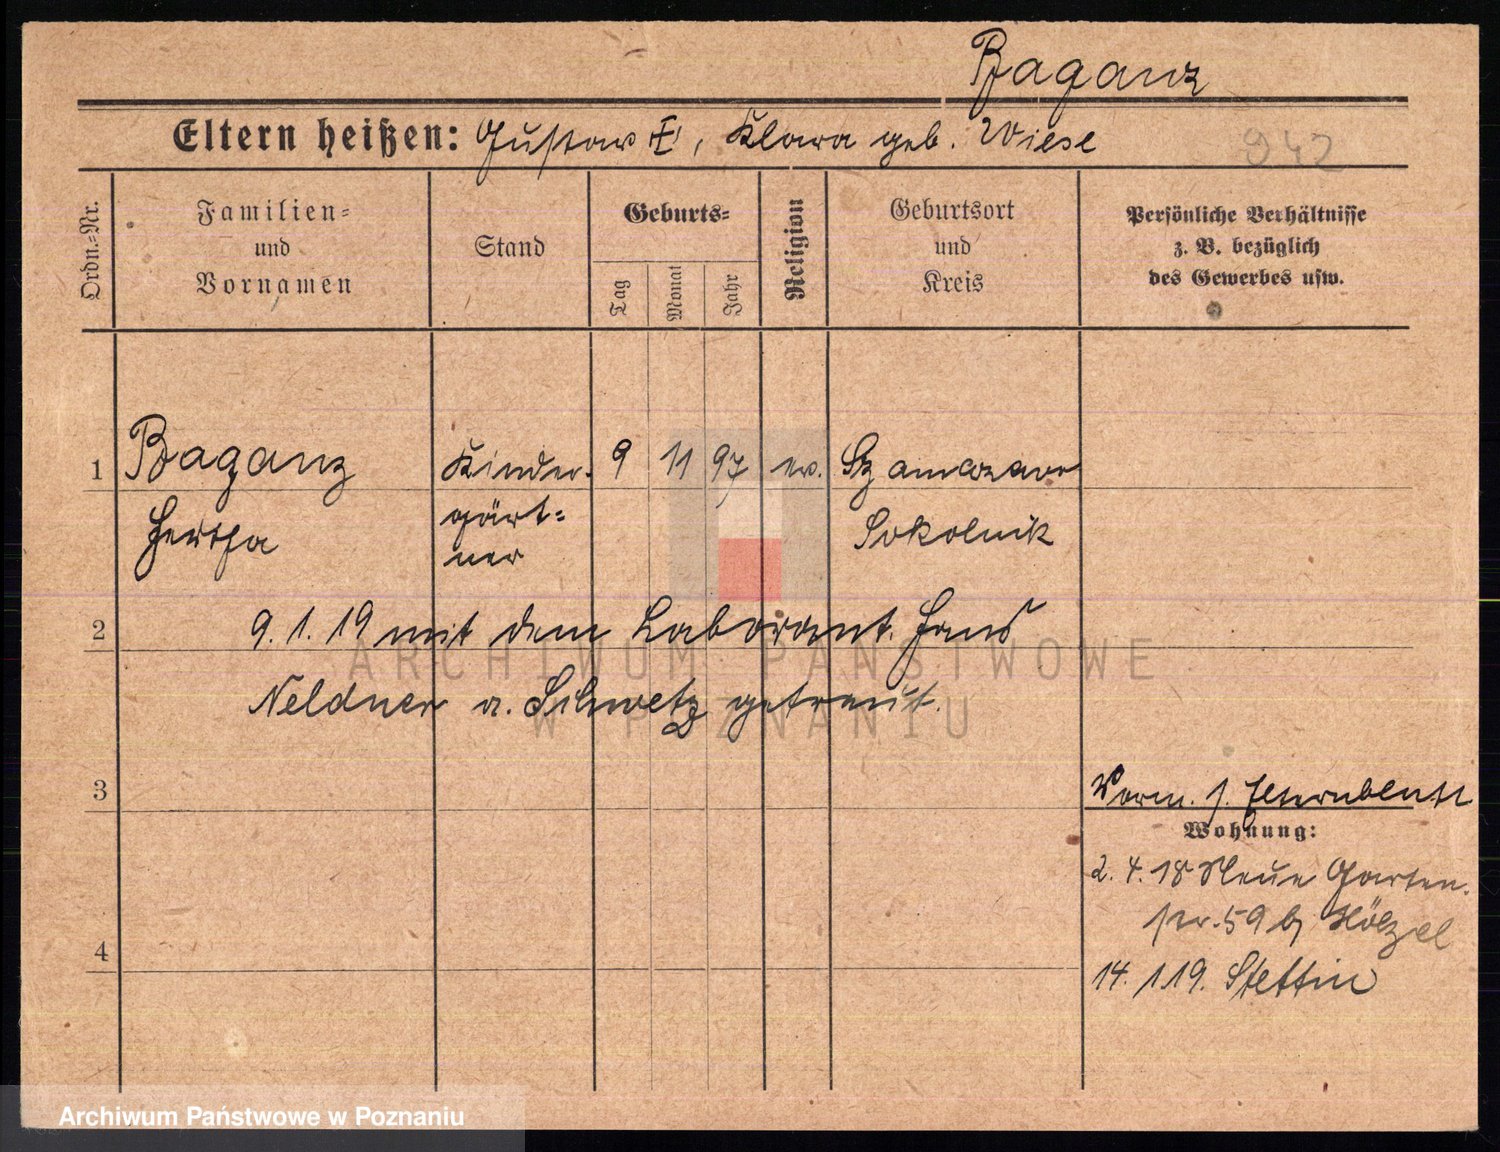 Baganz
Eltern heißen: Gustav E, Klara geb. Wiese
942
Ordn.=Nr.
Familien=
und
Vornamen
Stand
Geburts=
Tag
Monat
Jahr
Religion
Geburtsort
und
Kreis
Persönliche Verhältnisse
z. B. bezüglich
des Gewerbes usw.
1 Baganz Kinder- 9 11 97 ev.
Hertha gärt= Sokolnik
ner
2 9.1.19 mit dem Laborant. Hans
Neldner a. Schwetz getraut.
3
Wohnung:
2.4.18 Neue Garten-
str. 59 b/ Hölzel
4
14.1.19. Stettin
ARCHIWUM PAŃSTWOWE
W POZNANIU
Archiwum Państwowe w Poznaniu